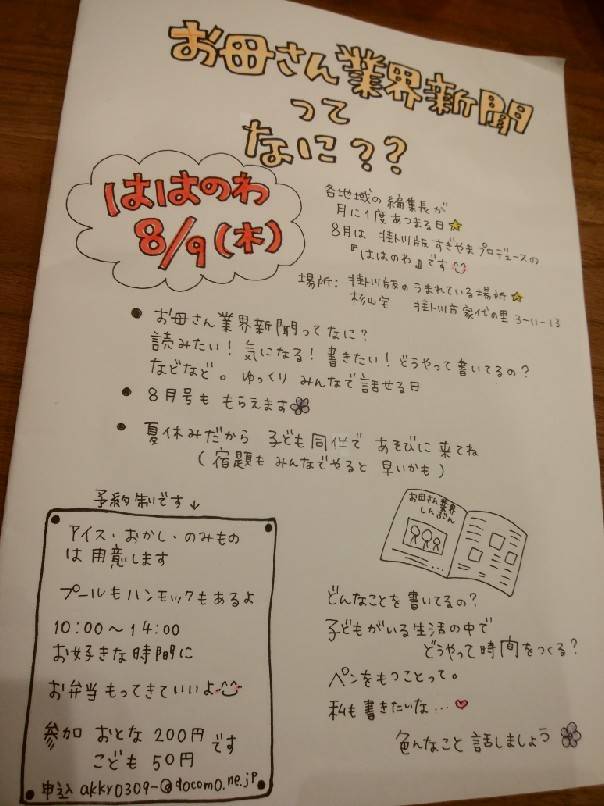 お母さん業界新聞
って
なに??
ははのわ
8/9(木)
各地域の編集長が
月に1度あつまる日
8月は 掛川版すぎやまプロデュースの
『ははのわ』です
場所: 掛川版のうまれている場所
杉山宅 掛川市家代の里 3-11-13
● お母さん業界新聞ってなに?
読みたい!気になる!書きたい!どうやって書いてるの?
などなど。ゆっくり みんなで話せる日
● 8月号も もらえます
● 夏休みだから 子ども同伴で あそびに来てね
(宿題も みんなでやると 早いかも)
予約制です↓
アイス・おかし・のみもの
は用意します
プールもハンモックもあるよ
10:00〜14:00
お好きな時間に
お弁当もってきていいよ
参加 おとな 200円
こども 50円 です
申込 akky0309-@docomo.ne.jp
お母さん業界
しんぶん
どんなことを書いてるの?
子どもがいる生活の中で
どうやって時間をつくる?
ペンをもつことって。
私も書きたいな...
色んなこと 話しましょう